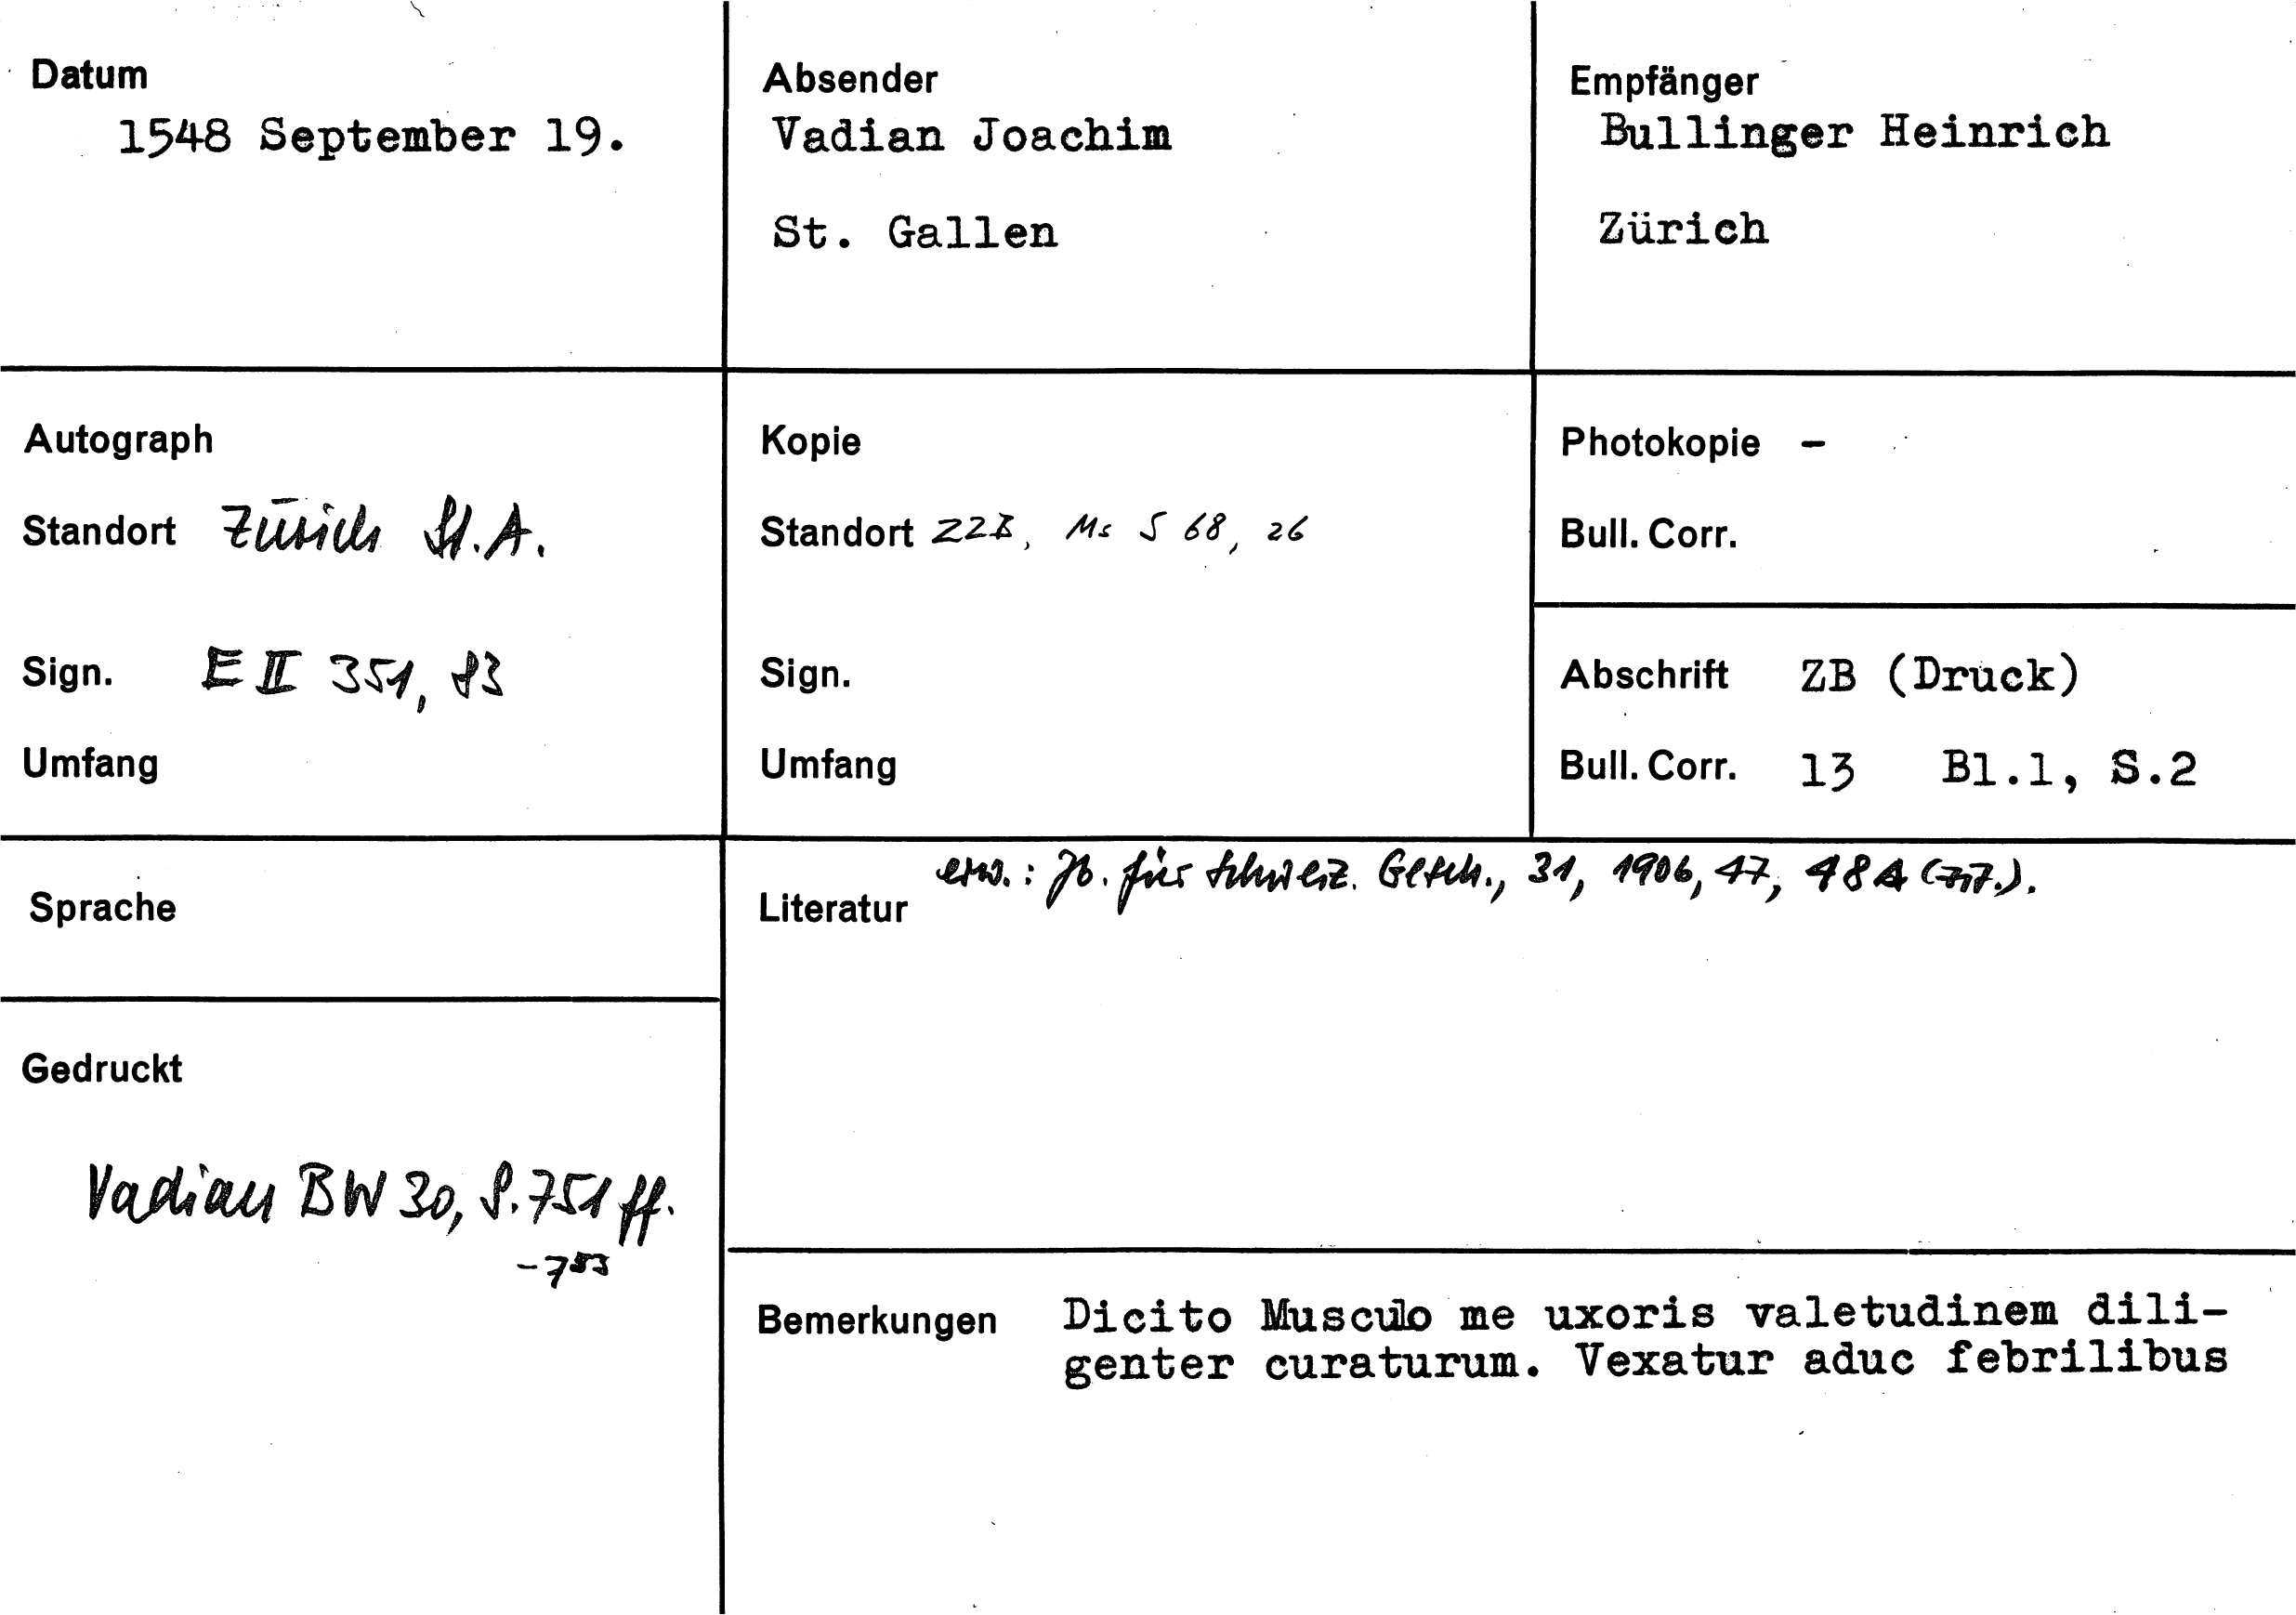 Datum
1548 September 19.
Absender
Vadian Joachim
St. Gallen
Empfänger
Bullinger Heinrich
Zürich
Autograph
Standort Zürich St.A.
Sign. E II 351, 83
Umfang
Kopie
Standort ZZB, Ms S 68, 26
Sign.
Umfang
Photokopie -
Bull. Corr.
Abschrift ZB (Druck)
Bull. Corr. 13 Bl.1, S.2
Sprache
Gedruckt
Vadian BW 30, S. 751 ff.
-753
Literatur erw.: Jb. für Schweiz. Gesch., 31, 1906, 47, 48 A (zit.).
Bemerkungen Dicito Musculo me uxoris valetudinem dili-
genter curaturum. Vexatur aduc febrilibus